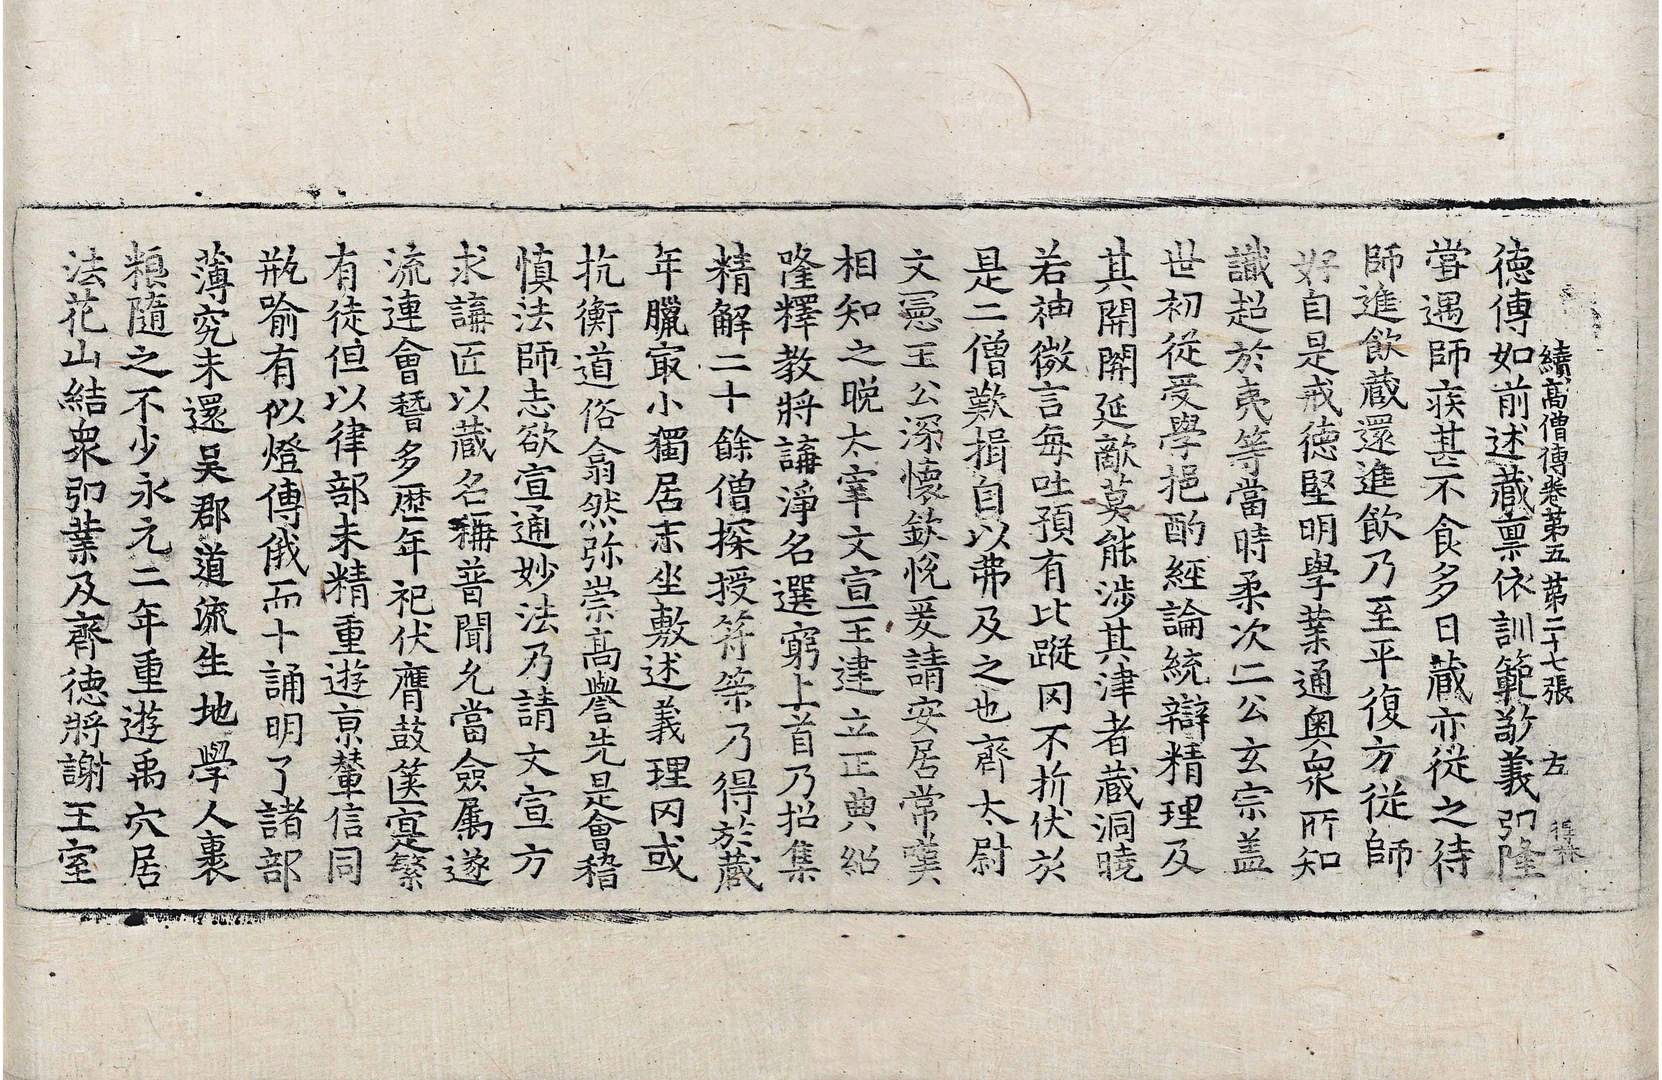 續高僧傳卷第五 第二十七張 左
德傳如前述藏禀依訓範敬義卽隆
甞遇師疾甚不食多日藏亦從之待
師進飲藏還進飲乃至平復方從師
好自是戒德堅明學業通奧衆所知
識超於夷等當時柔次二公玄宗盖
世初從受學挹酌經論統辯精理及
其開關延敵莫能涉其津者藏洞曉
若神微言每吐預有比蹤罔不折伏於
是二僧歎揖自以弗及之也齊太尉
文憲王公深懷欽悅爰請安居常嘆
相知之晚太宰文宣王建立正典紹
隆釋教將講淨名選窮上首乃招集
精解二十餘僧探授符策乃得於藏
年臘㝡小獨居末坐敷述義理罔或
抗衡道俗翕然弥崇高譽先是會稽
慎法師志欲宣通妙法乃請文宣方
求講匠以藏名稱普聞允當僉属遂
流連會稽多歷年祀伏膺鼓篋寔繁
有徒但以律部未精重遊京輦信同
瓶喻有似燈傳俄而十誦明了諸部
薄究末還吳郡道流生地學人裹
粮隨之不少永元二年重遊禹穴居
法花山結衆卽業及齊德將謝王室